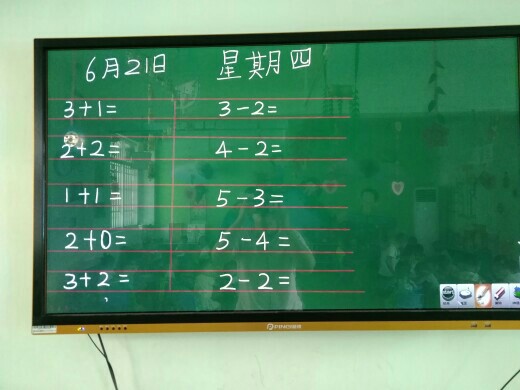 6月21日 星期四
3+1= 3-2=
2+2= 4-2=
1+1= 5-3=
2+0= 5-4=
3+2= 2-2=